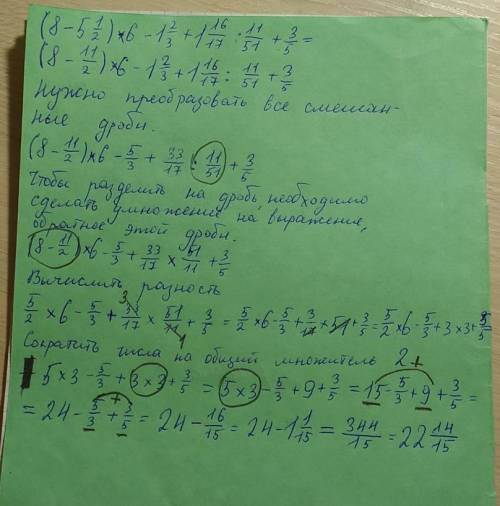 (8-5 1/2)×6-1 2/3+1 16/17:11/51+3/5=
(8-11/2)×6-1 2/3+1 16/17:11/51+3/5
Нужно преобразовать все смешан-
ные дроби.
(8-11/2)×6-5/3+33/17:11/51+3/5
Чтобы разделить на дробь, необходимо
сделать умножение на выражение,
обратное этой дроби.
(8-11/2)×6-5/3+33/17×51/11+3/5
Вычислить разность
5/2×6-5/3+33/17×51/11+3/5=5/2×6-5/3+3/17×51+3/5=5/2×6-5/3+3×3+3/5
Сократить числа на общий множитель 2
5×3-5/3+3×3+3/5=5×3-5/3+9+3/5=15-5/3+9+3/5=
=24-5/3+3/5=24-16/15=24-1 1/15=344/15=22 14/15